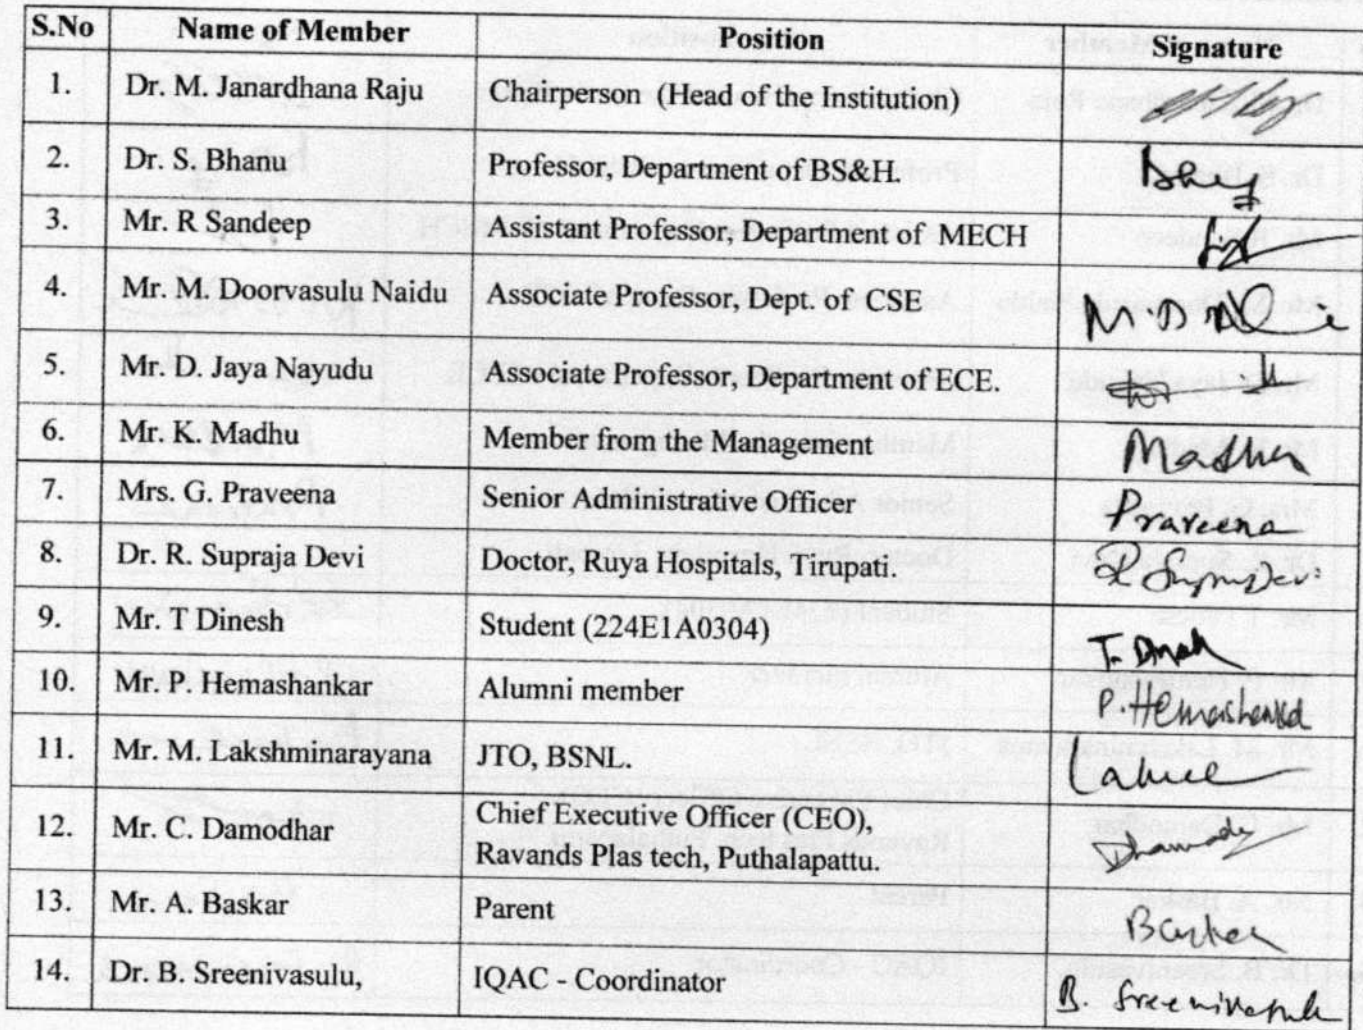 S.No Name of Member Position Signature
1. Dr. M. Janardhana Raju Chairperson (Head of the Institution)
2. Dr. S. Bhanu Professor, Department of BS&H.
3. Mr. R Sandeep Assistant Professor, Department of MECH
4. Mr. M. Doorvasulu Naidu Associate Professor, Dept. of CSE
5. Mr. D. Jaya Nayudu Associate Professor, Department of ECE.
6. Mr. K. Madhu Member from the Management Madhu
7. Mrs. G. Praveena Senior Administrative Officer Praveena
8. Dr. R. Supraja Devi Doctor, Ruya Hospitals, Tirupati.
9. Mr. T Dinesh Student (224E1A0304)
10. Mr. P. Hemashankar Alumni member P. Hemashankar
11. Mr. M. Lakshminarayana JTO, BSNL.
12. Mr. C. Damodhar Chief Executive Officer (CEO),
Ravands Plas tech, Puthalapattu.
13. Mr. A. Baskar Parent
14. Dr. B. Sreenivasulu, IQAC - Coordinator B. Sreenivasulu